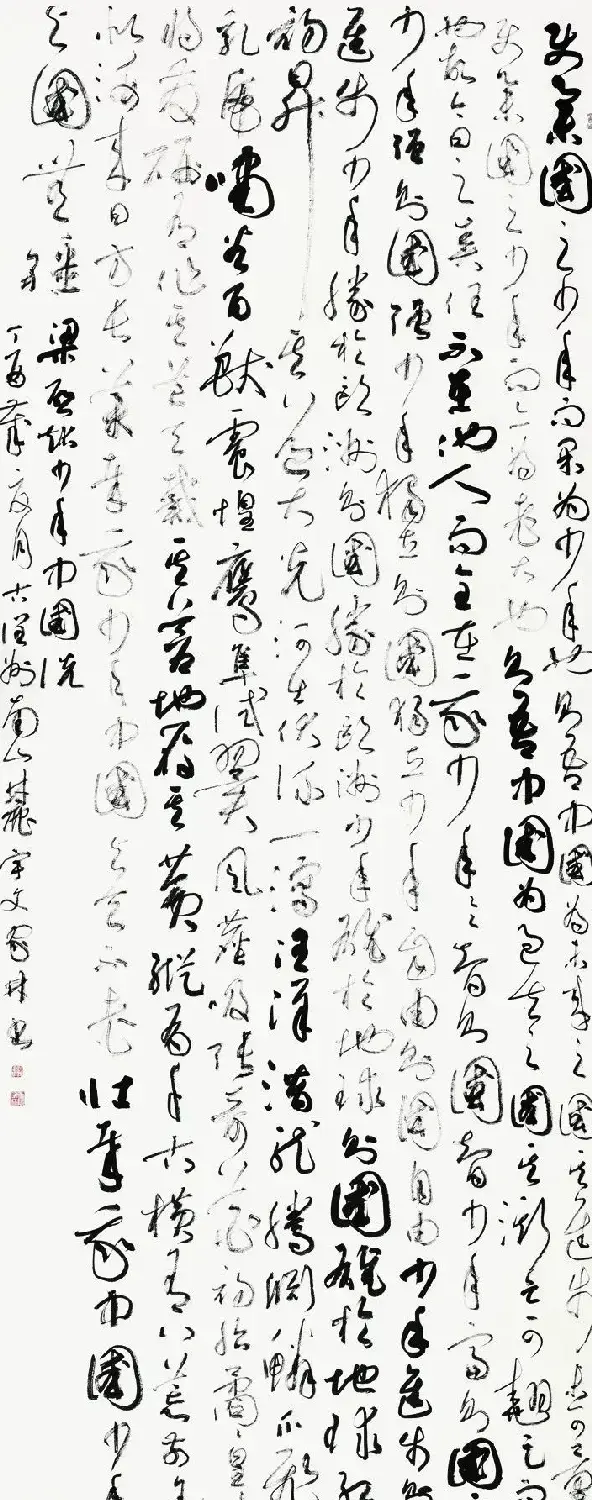 使舉國之少年而果為少年也則吾中國為未來之國其進步未可量
使舉國之少年而亦為老大也則吾中國為過去之國其澌亡可翹足而
也故今日之責任不在他人而全在我少年々智則國智少年富則國
少年強則國強少年獨立則國獨立少年自由則國自由少年進步則
進步少年勝於歐洲則國勝於歐洲少年雄於地球則國雄於地球紅
初昇其道大光河出伏流一瀉汪洋潛龍騰淵鱗爪飛
乳虎嘯谷百獸震惶鷹隼試翼風塵吸張奇花初胎矞矞皇
將發硎有作其芒天戴其蒼地履其黃縱有千古橫有八荒前途
似海來日方長美哉我少年中國與天不老壯哉我中國少年
與國無疆
梁啟超少年中國說
丁酉夏月古潤州南山麓宇文家林書